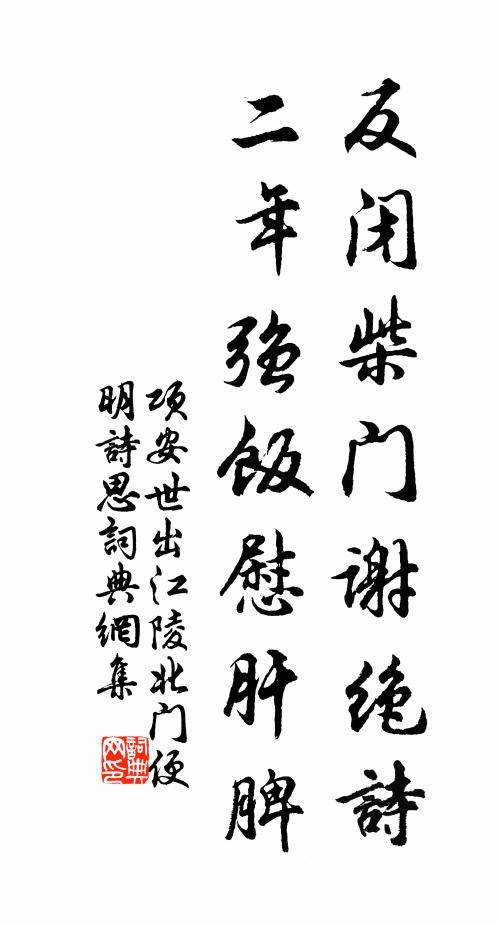 反闭柴门谢绝詩
二年強飯慰肝脾
项安世出江陵北门便
明詩思詞典網集
詞典
网印